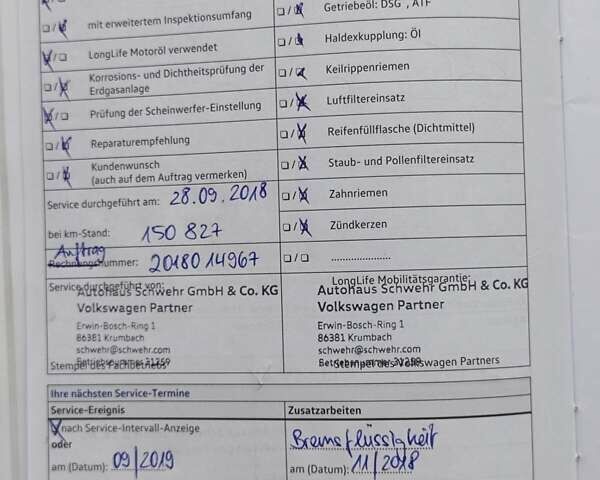 mit erweitertem Inspektionsumfang
LongLife Motoröl verwendet
Korrosions- und Dichtheitsprüfung der
Erdgasanlage
Prüfung der Scheinwerfer-Einstellung
Reparaturempfehlung
Kundenwunsch
(auch auf dem Auftrag vermerken)
Service durchgeführt am: 28.09.2018
bei km-Stand: 150 827
Auftrag
Rechnungsnummer: 20180 14967
Service durchgeführt von:
Autohaus Schwehr GmbH & Co. KG
Volkswagen Partner
Erwin-Bosch-Ring 1
86381 Krumbach
schwehr@schwehr.com
Betriebsnummer 31259
Stempel des Fachbetriebs
Getriebeöl: DSG , ATF
Haldexkupplung: Öl
Keilrippenriemen
Luftfiltereinsatz
Reifenfüllflasche (Dichtmittel)
Staub- und Pollenfiltereinsatz
Zahnriemen
Zündkerzen
......................
LongLife Mobilitätsgarantie:
Autohaus Schwehr GmbH & Co. KG
Volkswagen Partner
Erwin-Bosch-Ring 1
86381 Krumbach
schwehr@schwehr.com
Betriebsnummer 31259
Stempel des Volkswagen Partners
Ihre nächsten Service-Termine
Service-Ereignis
nach Service-Intervall-Anzeige
oder
am (Datum): 09/2019
Zusatzarbeiten
Bremsflüssigkeit
am (Datum): 11/2018